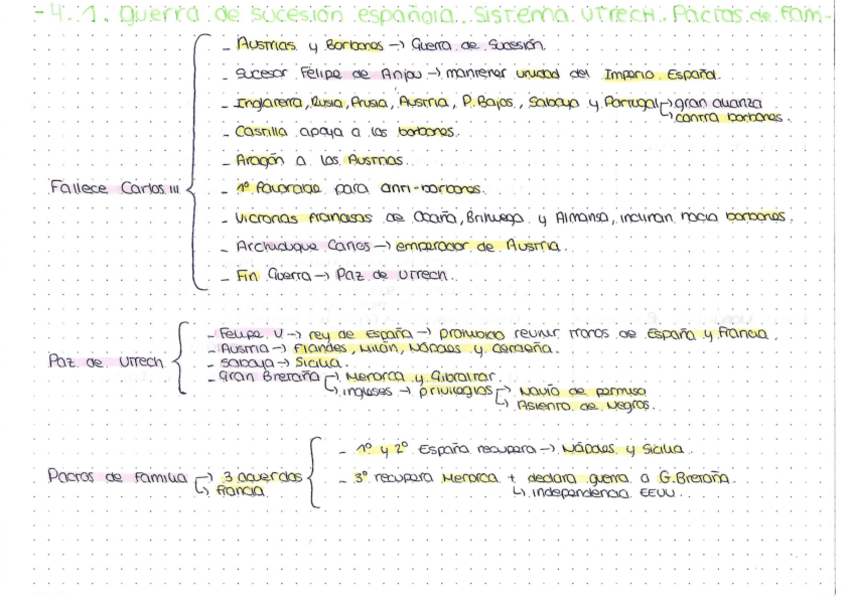 - 4. 1. Guerra de sucesión española. Sistema Utrech. Pactos de Fam-
- Austrias y Borbones → Guerra de Sucesión.
- Sucesor Felipe de Anjou → mantener unidad del Imperio Español.
- Inglaterra, Rusia, Prusia, Austria, P. Bajos, Saboya y Portugal → gran alianza
↳ contra borbones.
- Castilla apoya a los borbones.
- Aragón a los Austrias.
Fallece Carlos III
- 1º favorable para anti-borbones.
- Victorias francesas de Ocaña, Brihuega y Almansa, inclinan hacia borbones.
- Archiduque Carlos → emperador de Austria.
- Fin Guerra → Paz de Utrech.
- Felipe V → rey de España → prohibido reunir tronos de España y Francia
- Austria → Flandes, Milán, Nápoles y Cerdeña.
Paz de Utrech
- Saboya → Sicilia.
- Gran Bretaña → Menorca y Gibraltar.
↳ ingleses → privilegios → Navío de permiso
↳ Asiento de Negros.
- 1º y 2º España recupera → Nápoles y Sicilia.
Pactos de Familia → 3 acuerdos
↳ Francia
- 3º recupera Menorca + declara guerra a G. Bretaña.
↳ independencia EEUU.